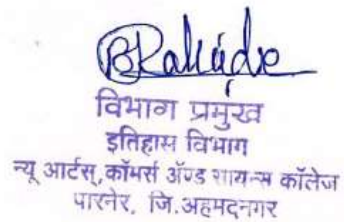 विभाग प्रमुख
इतिहास विभाग
न्यू आर्टस्, कॉमर्स ॲण्ड सायन्स कॉलेज
पारनेर, जि.अहमदनगर